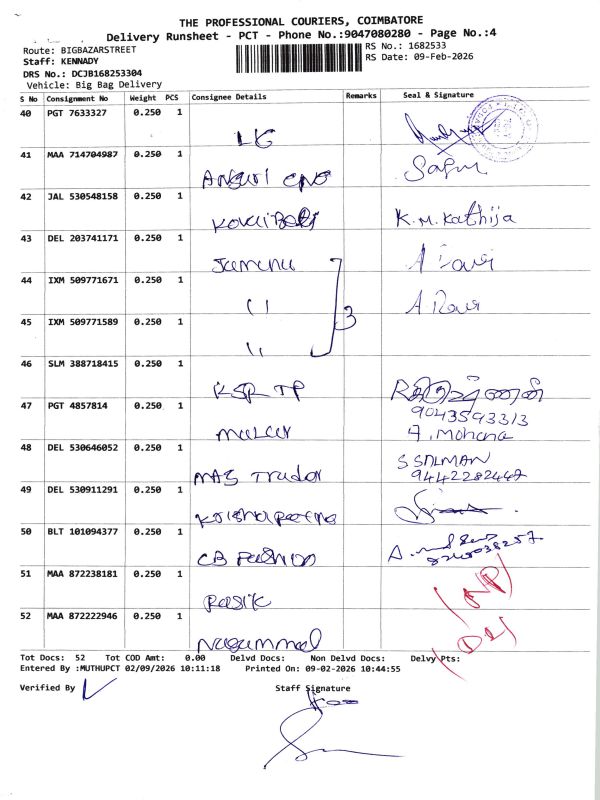 THE PROFESSIONAL COURIERS, COIMBATORE
Delivery Runsheet - PCT - Phone No.:9047080280 - Page No.:4
Route: BIGBAZARSTREET
RS No.: 1682533
Staff: KENNADY
RS Date: 09-Feb-2026
DRS No.: DCJB168253304
Vehicle: Big Bag Delivery
S No Consignment No Weight PCS Consignee Details Remarks Seal & Signature
40 PGT 7633327 0.250 1
LG
41 MAA 714704987 0.250 1
42 JAL 530548158 0.250 1
K.M.Kathija
43 DEL 203741171 0.250 1
44 IXM 509771671 0.250 1
11
3
45 IXM 509771589 0.250 1
11
46 SLM 388718415 0.250 1
KSR TP
47 PGT 4857814 0.250 1
9043593313
A. Mohana
48 DEL 530646052 0.250 1
MAS Trador
S SALMAN
9442282447
49 DEL 530911291 0.250 1
50 BLT 101094377 0.250 1
CB Fashion
51 MAA 872238181 0.250 1
Rasik
52 MAA 872222946 0.250 1
Nagammal
Tot Docs: 52 Tot COD Amt: 0.00 Delvd Docs: Non Delvd Docs: Delvy Pts:
Entered By :MUTHUPCT 02/09/2026 10:11:18 Printed On: 09-02-2026 10:44:55
Verified By
Staff Signature